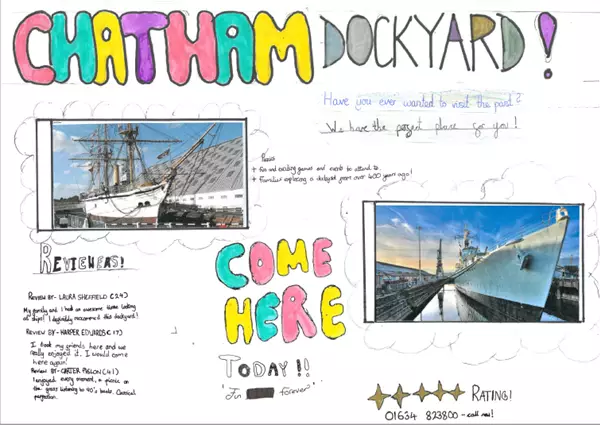 CHATHAM DOCKYARD!
Have you ever wanted to visit the past?
We have the perfect place for you!
Pluses
+ Fun and exciting games and events to attend to.
+ Families exploring a dockyard from over 400 years ago!
REVIEWERS!
REVIEW BY- LAURA SHEFFIELD (24)
My family and I had an awesome time looking
at ships! I definitely recommend this dockyard!
REVIEW BY- HARPER EDWARDS (19)
I took my friends here and we
really enjoyed it. I would come
here again!
REVIEW BY- CARTER (41)
I enjoyed every moment, a picnic on
the grass listening to 40's bands. Classical
perfection.
COME
HERE
TODAY!!
"Fun forever"
RATING!
01634 823800 - call now!